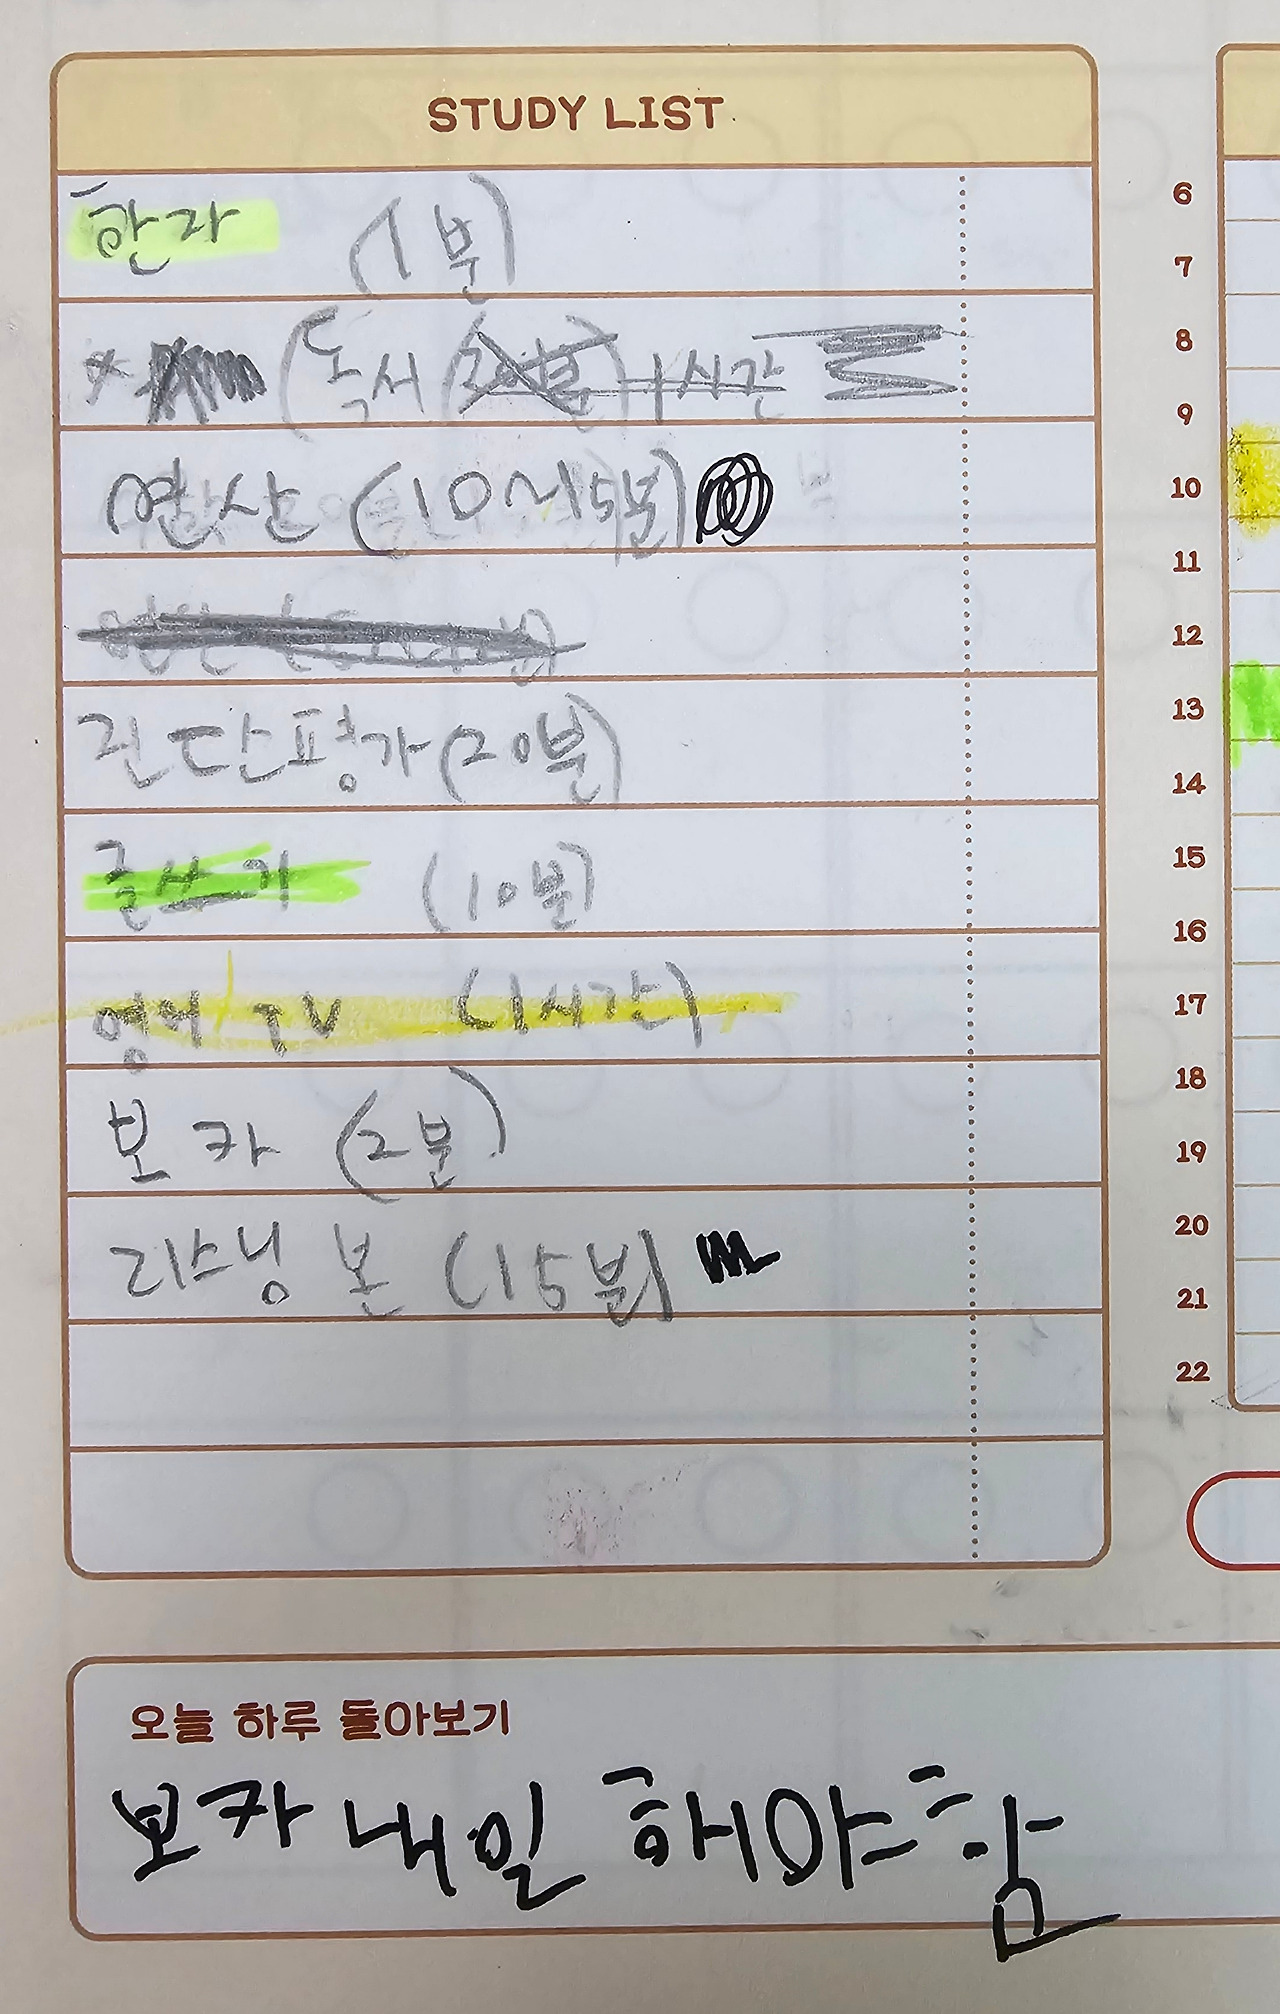 STUDY LIST
한자 (1분)
* (독서 1시간
연산 (10~15분)
진단평가 (20분)
글쓰기 (10분)
영어 TV (1시간)
보카 (2분)
리스닝 본 (15분)
오늘 하루 돌아보기
보카 내일 해야함
6
7
8
9
10
11
12
13
14
15
16
17
18
19
20
21
22